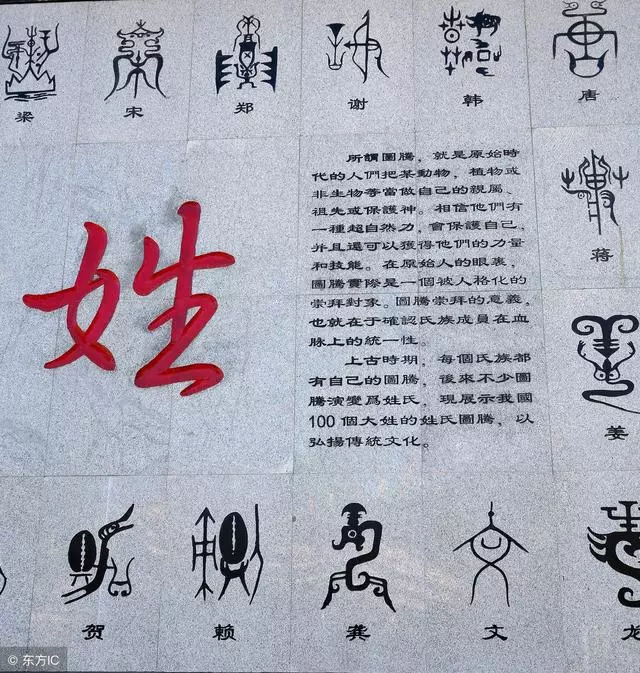 梁 宋 郑 谢 韩 唐
所謂圖騰，就是原始時
代的人們把某動物，植物或
非生物等當做自己的親屬、
祖先或保護神。相信他們有
一種超自然力，會保護自己，
并且還可以獲得他們的力量
和技能。在原始人的眼裏，
圖騰實際是一個被人格化的
崇拜對象。圖騰崇拜的意義，
也就在于確認氏族成員在血
脉上的統一性。
上古時期，每個氏族都
有自己的圖騰，後來不少圖
騰演變爲姓氏，現展示我國
100個大姓的姓氏圖騰，以
弘揚傳統文化。
姓
蒋
姜
贺 赖 龚 文 龙
© 东方IC